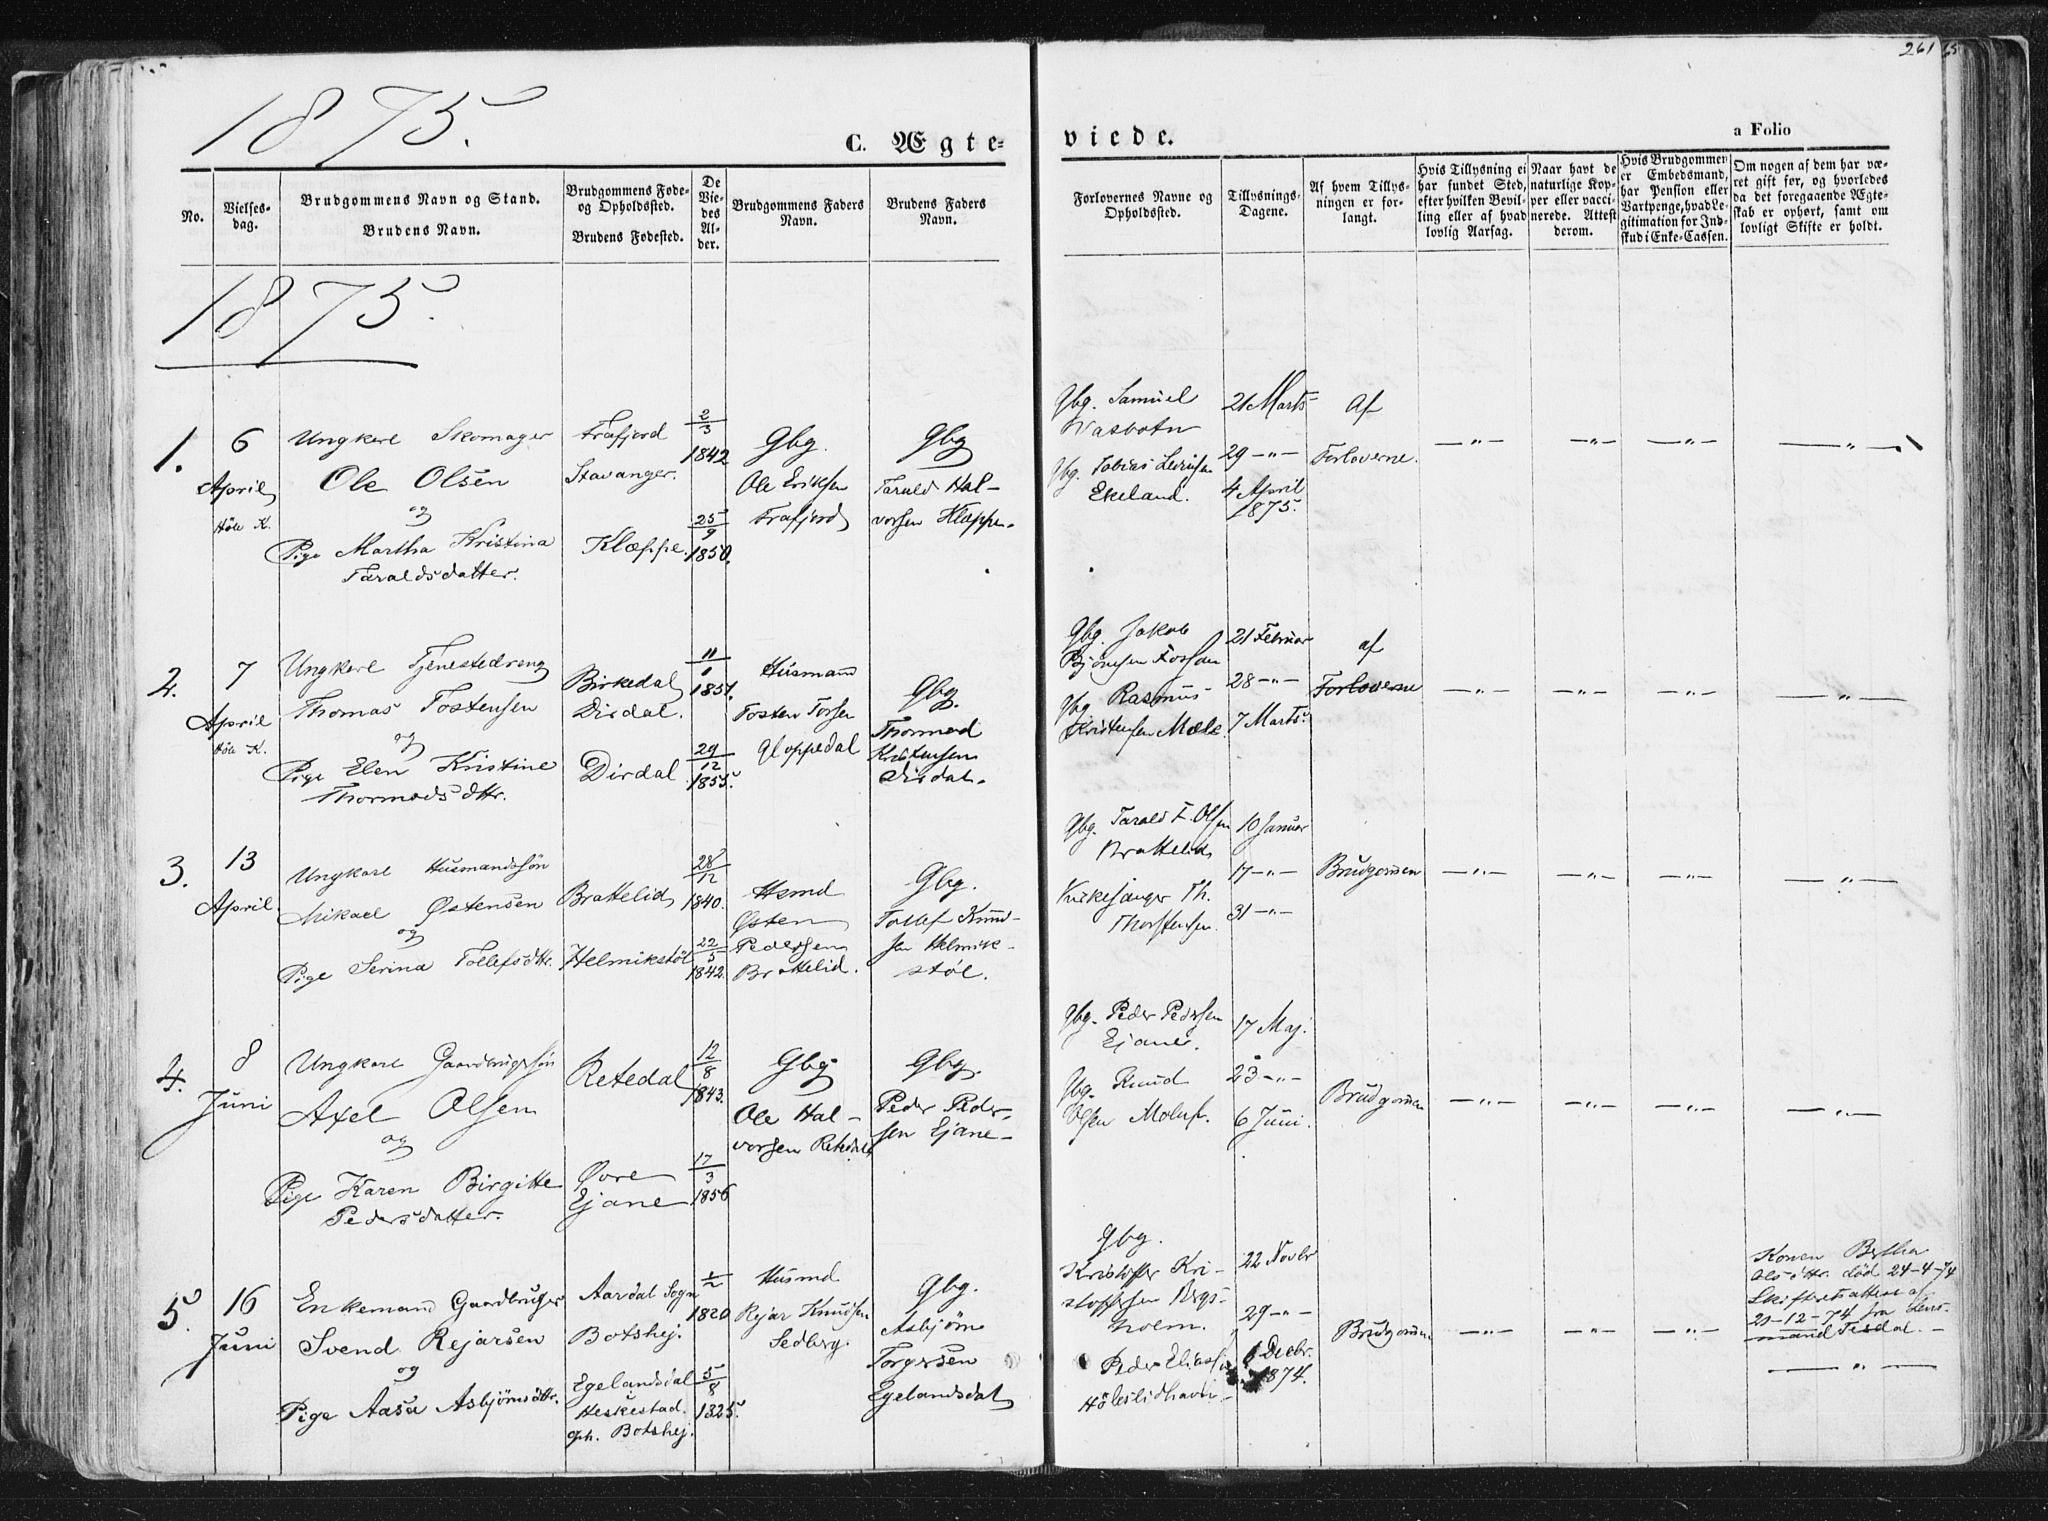 261
1875.
C. Ægte-
viede.
a Folio
No.
Vielses-
dag.
Brudgommens Navn og Stand.
Brudens Navn.
Brudgommens Føde-
og Opholdssted.
Brudens Fødested.
De
Vie-
des
Al-
der.
Brudgommens Faders
Navn.
Brudens Faders
Navn.
Forlovernes Navne og
Opholdssted.
Tillysnings-
Dagene.
Af hvem Tillys-
ningen er for-
langt.
Hvis Tillysning ei
har fundet Sted,
efter hvilken Bevil-
ling eller af hvad
lovlig Aarsag.
Naar havt de
naturlige Kop-
per eller vacci-
nerede. Attest
derom.
Hvis Brudgommen
er Embedsmand,
har Pension eller
Vartpenge, hvad Le-
gitimation for Ind-
skud i Enke-Cassen.
Om nogen af dem har væ-
ret gift før, og hvorledes
da det foregaaende Ægte-
skab er ophørt, samt om
lovligt Skifte er holdt.
1875.
1.
6
April
Höle K.
Ungkarl Skomager
Ole Olsen
og
Pige Martha Kristina
Taraldsdatter.
Frafjord
Stavanger.
Klæppe.
2/3
1842
25/9
1850.
Gbg.
Ole Eriksen
Frafjord
Gbg
Tarald Hal-
vorsen Klæppe.
Gbg. Samuel
Vasbotn
Gbg. Tobias
Ekeland.
21 Marts
29 -"-
4 April
1875.
Af
Forloverne.
-"- -"- -"- -"-
2.
7
April
Höle K.
Ungkarl Tjenestedreng
Thomas Tostensen
og
Pige Elen Kristine
Thormodsdttr.
Birkedal
Dirdal.
Dirdal
11/1
1851.
29/12
1855.
Husmand
Tosten Torsen
Gloppedal
Gbg.
Thormod
Kristensen
Dirdal.
Gbg. Jakob
Bjørnsen Fossan
Gbg Rasmus
Kristensen Mæle.
21 Februar
28 -"-
7 Marts.
af
Forloverne
-"- -"- -"- -"-
3.
13
April
Ungkarl Husmandssøn
Mikael Østensen
og
Pige Serina Tollefsdttr.
Brattelid
Helmikstøl
28/12
1840.
22/5
1842.
Hsmd
Østen
Pedersen
Brattelid.
Gbg.
Tollef Knud-
sen Helmik-
støl.
Gbg. Tarald T. Olsen
Brattelid
Kirkesanger Th.
Thorstensen.
10 Januar
17 -"-
31 -"-
Brudgommen
-"- -"- -"- -"-
4.
8
Juni
Ungkarl Gaardbrugersøn
Axel Olsen
og
Pige Karen Birgitte
Pedersdatter.
Retedal
Øvre
Ejane
12/8
1843.
17/3
1856
Gbg
Ole Hal-
vorsen Retedal
Gbg.
Peder Peder-
sen Ejane-
Gbg. Peder Pedersen
Ejane.
Gbg. Knud
Olsen Molaug.
17 Maj.
23 -"-
6 Juni.
Brudgommen
-"- -"- -"- -"-
5.
16
Juni
Enkemand Gaardbruger
Svend Rejarsen
og
Pige Aasa Asbjørnsdttr.
Aardal Sogn
Botshej.
Egelandsdal
Heskestad.
oph. Botshej.
1/2
1820
5/8
1825.
Husmd
Rejar Knudsen
Sedberg.
Gbg.
Asbjørn
Torgersen
Egelandsdal
Gbg.
Kristoffer Kri-
stoffersen Bergs-
holm.
Peder Eliassen
Höleslidhavn
22 Novbr
29 -"-
6 Decbr.
1874.
Brudgommen
-"- -"- -"-
Konen Bertha
Olsdttr. død 24-4-74
Skifteattest af
21-12-74 fra Lens-
mand Tesdal. -
-"-